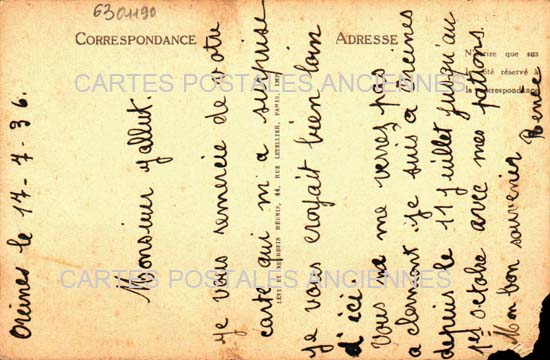 6301190
CORRESPONDANCE
ADRESSE
CARTES POSTALES ANCIENNES
CARTES POSTALES ANCIENNES
Orcines le 17-7-36.
Monsieur Jallut.
je vous remercie de votre
carte qui m'a surprise
je vous croyait bien loin
d'ici.
Vous ne me verrez pas
a clermont je suis a Orcines
depuis le 11 juillet jusqu'au
1er octobre avec mes patrons.
Mon bon souvenir Renée
N'écrire que sur
côté réservé à
la correspondance
NEURDEIN RÉUNIS, 44, RUE LETELLIER, PARIS, IMP.